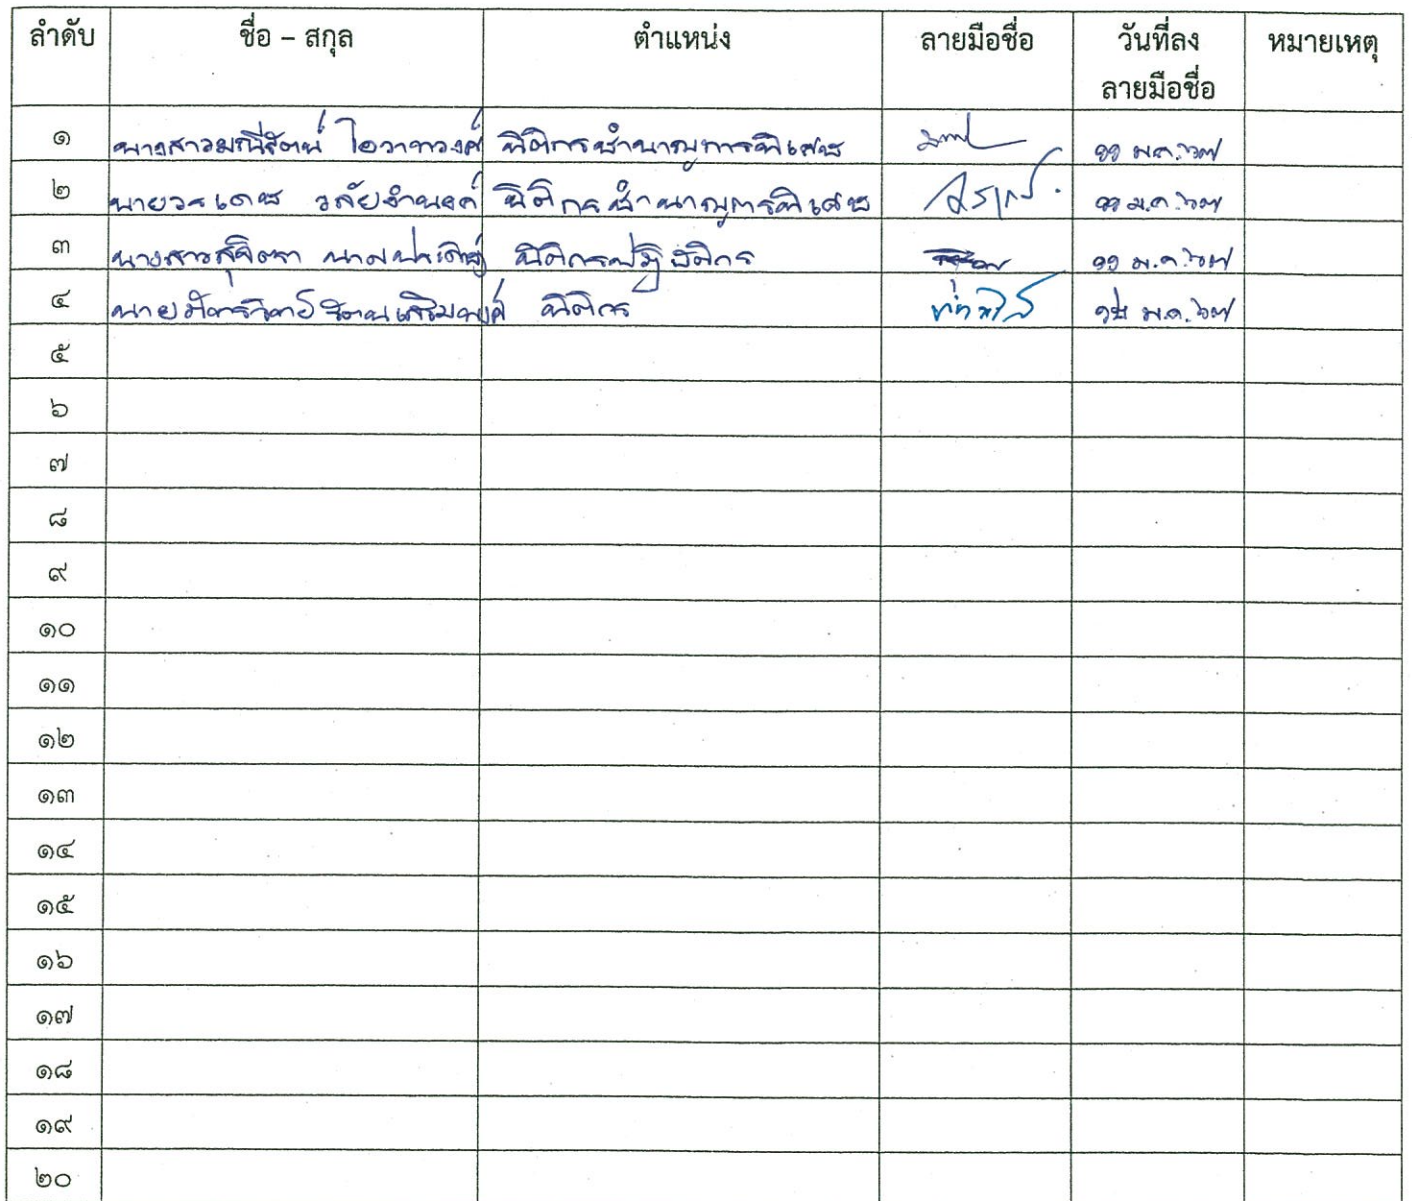 ลำดับ ชื่อ – สกุล ตำแหน่ง ลายมือชื่อ วันที่ลง หมายเหตุ
ลายมือชื่อ
๑ นางสาวมณีรัตน์ โอวาทวงศ์ นิติกรชำนาญการพิเศษ ๑๑ ม.ค. ๖๗
๒ นายวรเดช วลัยจำนงค์ นิติกรชำนาญการพิเศษ ๑๑ ม.ค. ๖๗
๓ นางสาวสุจิตรา นามประดิษฐ์ นิติกรปฏิบัติการ ๑๑ ม.ค. ๖๗
๔ นายภัทรวิทย์ รัตนเสริมพงศ์ นิติกร ม.ค. ๖๗
๕
๖
๗
๘
๙
๑๐
๑๑
๑๒
๑๓
๑๔
๑๕
๑๖
๑๗
๑๘
๑๙
๒๐